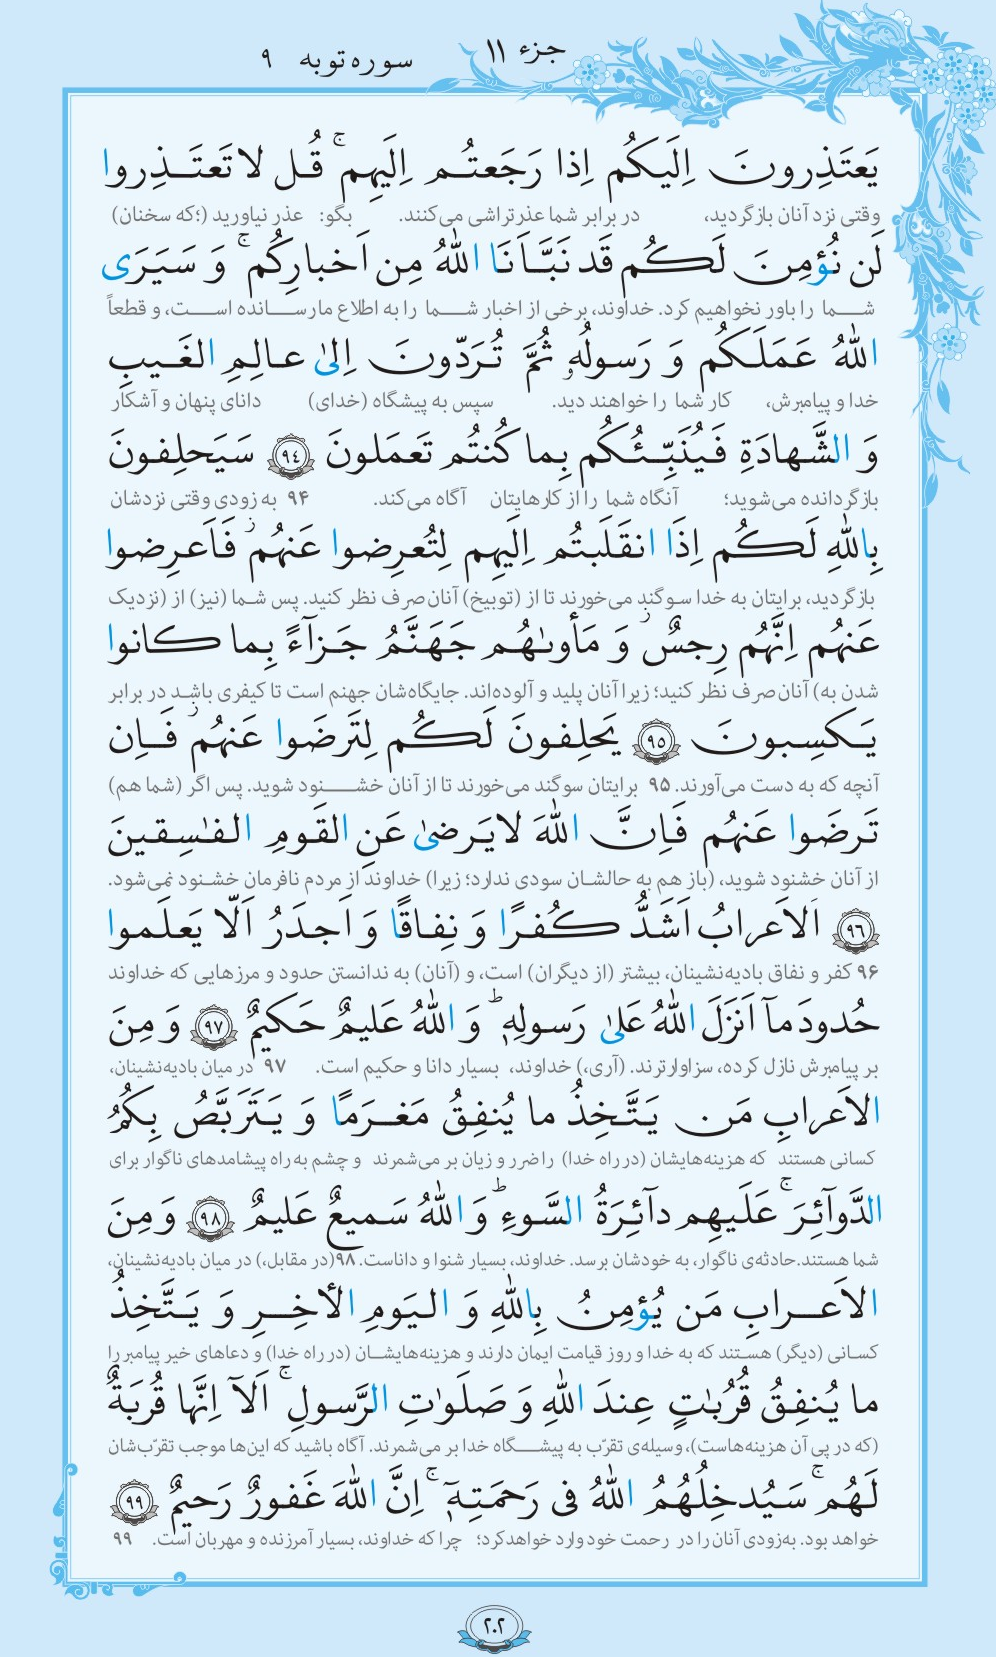 جزء ۱۱
سوره توبه ۹
يَعتَذِرونَ اِلَيكُم اِذا رَجَعتُم اِلَيهِم ۚ قُل لا تَعتَذِروا
وقتی نزد آنان بازگردید، در برابر شما عذرتراشی می‌کنند. بگو: عذر نیاورید (؛که سخنان)
لَن نُؤمِنَ لَكُم قَد نَبَّاَنَا اللهُ مِن اَخبارِكُم ۚ وَ سَيَرَى
شما را باور نخواهیم کرد. خداوند، برخی از اخبار شما را به اطلاع ما رسانده است، و قطعاً
اللهُ عَمَلَكُم وَ رَسولُهٗ ثُمَّ تُرَدّونَ اِلىٰ عالِمِ الغَيبِ
خدا و پیامبرش، کار شما را خواهند دید. سپس به پیشگاه (خدای) دانای پنهان و آشکار
وَ الشَّهادَةِ فَيُنَبِّئُكُم بِما كُنتُم تَعمَلونَ ﴿۹۴﴾ سَيَحلِفونَ
بازگردانده می‌شوید؛ آنگاه شما را از کارهایتان آگاه می‌کند. ۹۴ به زودی وقتی نزدشان
بِاللهِ لَكُم اِذَا انقَلَبتُم اِلَيهِم لِتُعرِضوا عَنهُم ۖ فَاَعرِضوا
بازگردید، برایتان به خدا سوگند می‌خورند تا از (توبیخ) آنان صرف نظر کنید. پس شما (نیز) از (نزدیک
عَنهُم اِنَّهُم رِجسٌ ۖ وَ مَأوىٰهُم جَهَنَّمُ جَزآءً بِما كانوا
شدن به) آنان صرف نظر کنید؛ زیرا آنان پلید و آلوده‌اند. جایگاه‌شان جهنم است تا کیفری باشد در برابر
يَكسِبونَ ﴿۹۵﴾ يَحلِفونَ لَكُم لِتَرضَوا عَنهُم ۖ فَاِن
آنچه که به دست می‌آورند. ۹۵ برایتان سوگند می‌خورند تا از آنان خشنود شوید. پس اگر (شما هم)
تَرضَوا عَنهُم فَاِنَّ اللهَ لا يَرضىٰ عَنِ القَومِ الفٰسِقينَ
از آنان خشنود شوید، (باز هم به حالشان سودی ندارد؛ زیرا) خداوند از مردم نافرمان خشنود نمی‌شود.
﴿۹۶﴾ اَلاَعرابُ اَشَدُّ كُفرًا وَ نِفاقًا وَ اَجدَرُ اَلّا يَعلَموا
۹۶ کفر و نفاق بادیه‌نشینان، بیشتر (از دیگران) است، و (آنان) به ندانستن حدود و مرزهایی که خداوند
حُدودَ مآ اَنزَلَ اللهُ عَلىٰ رَسولِهٖ ۗ وَ اللهُ عَليمٌ حَكيمٌ ﴿۹۷﴾ وَ مِنَ
بر پیامبرش نازل کرده، سزاوارترند. (آری،) خداوند، بسیار دانا و حکیم است. ۹۷ در میان بادیه‌نشینان،
الاَعرابِ مَن يَتَّخِذُ ما يُنفِقُ مَغرَمًا وَ يَتَرَبَّصُ بِكُمُ
کسانی هستند که هزینه‌هایشان (در راه خدا) را ضرر و زیان بر می‌شمرند و چشم به راه پیشامدهای ناگوار برای
الدَّوآئِرَ ۚ عَلَيهِم دآئِرَةُ السَّوءِ ۗ وَ اللهُ سَميعٌ عَليمٌ ﴿۹۸﴾ وَ مِنَ
شما هستند. حادثه‌ی ناگوار، به خودشان برسد. خداوند، بسیار شنوا و داناست. ۹۸ (در مقابل،) در میان بادیه‌نشینان،
الاَعرابِ مَن يُؤمِنُ بِاللهِ وَ اليَومِ الأخِرِ وَ يَتَّخِذُ
کسانی (دیگر) هستند که به خدا و روز قیامت ایمان دارند و هزینه‌هایشان (در راه خدا) و دعاهای خیر پیامبر را
ما يُنفِقُ قُرُبٰتٍ عِندَ اللهِ وَ صَلَوٰتِ الرَّسولِ ۚ اَلآ اِنَّها قُربَةٌ
(که در پی آن هزینه‌هاست)، وسیله‌ی تقرّب به پیشگاه خدا بر می‌شمرند. آگاه باشید که این‌ها موجب تقرّب‌شان
لَهُم ۚ سَيُدخِلُهُمُ اللهُ فى رَحمَتِهٖٓ ۚ اِنَّ اللهَ غَفورٌ رَحيمٌ ﴿۹۹﴾
خواهد بود. به‌زودی آنان را در رحمت خود وارد خواهدکرد؛ چرا که خداوند، بسیار آمرزنده و مهربان است. ۹۹
۲۰۲